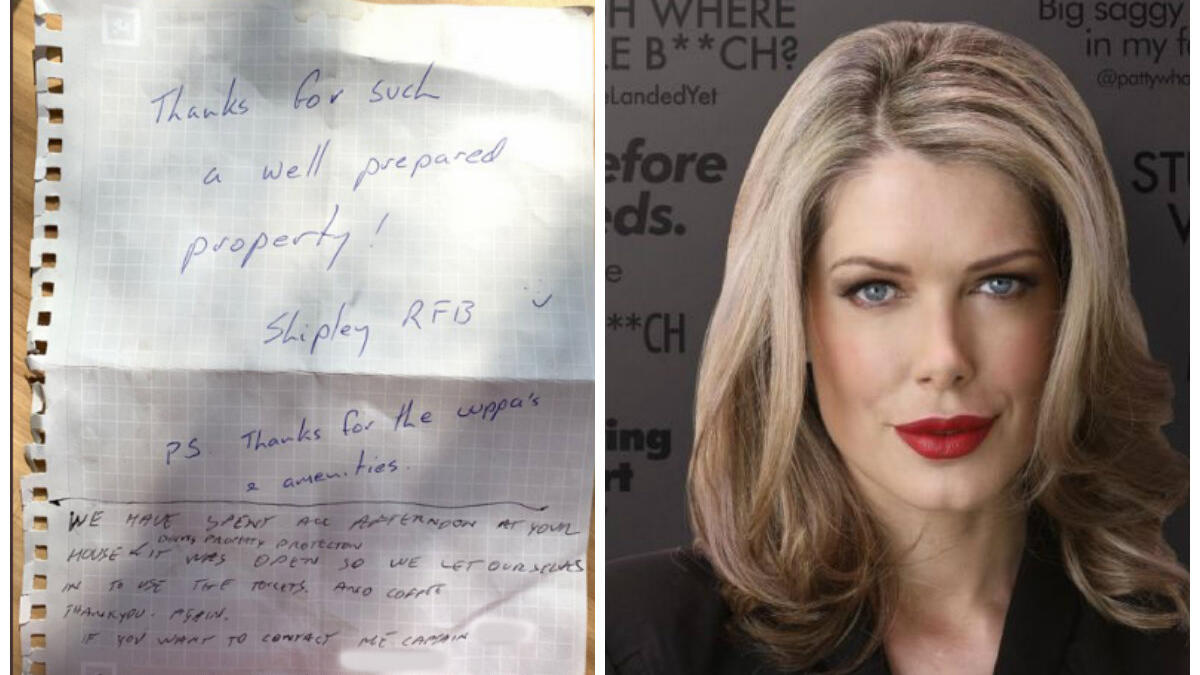 Thanks for such
a well prepared
property!
Shipley RFB
PS. Thanks for the cuppa's
& amenities.
WE HAVE SPENT ALL AFTERNOON AT YOUR
DOING PROPERTY PROTECTION
HOUSE & IT WAS OPEN SO WE LET OURSELVES
IN TO USE THE TOILETS. AND COFFEE
THANKYOU. AGAIN.
IF YOU WANT TO CONTACT ME CAPTAIN
H WHERE
LE B**CH?
eLandedYet
efore
eds.
e
**CH
ing
rt
Big saggy
in my f
@pattywho
STU